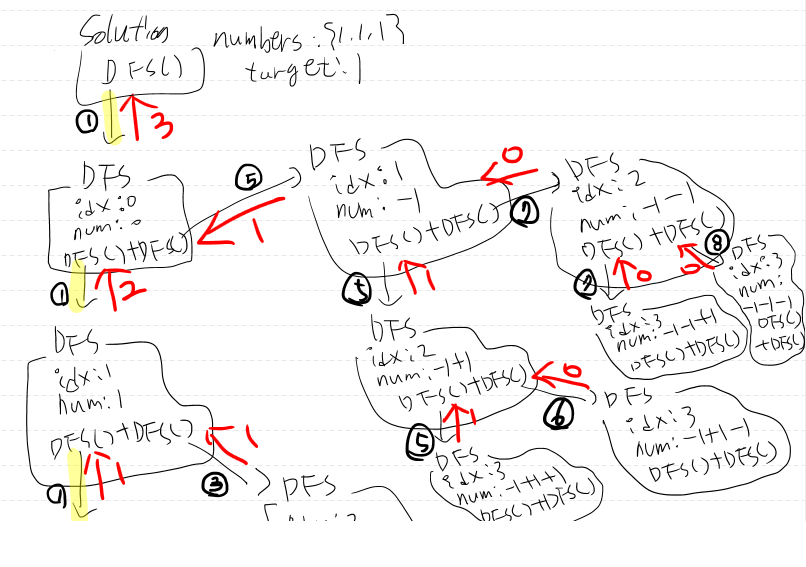 Solution
DFS()
numbers : {1,1,1}
target: 1
①
3
DFS
idx:0
num:0
DFS()+DFS()
⑤
1
①
2
DFS
idx:1
num:-1
DFS()+DFS()
0
⑦
1
DFS
idx:2
num:-1-1
DFS()+DFS()
⑦
0
0
⑧
DFS
idx:3
num:-1-1+1
DFS()+DFS()
DFS
idx:3
num:
-1-1-1
DFS()
+DFS()
DFS
idx:1
num:1
DFS()+DFS()
①
1
1
③
DFS
DFS
idx:2
num:-1+1
DFS()+DFS()
0
⑥
⑤
1
DFS
idx:3
num:-1+1+1
DFS()+DFS()
DFS
idx:3
num:-1+1-1
DFS()+DFS()